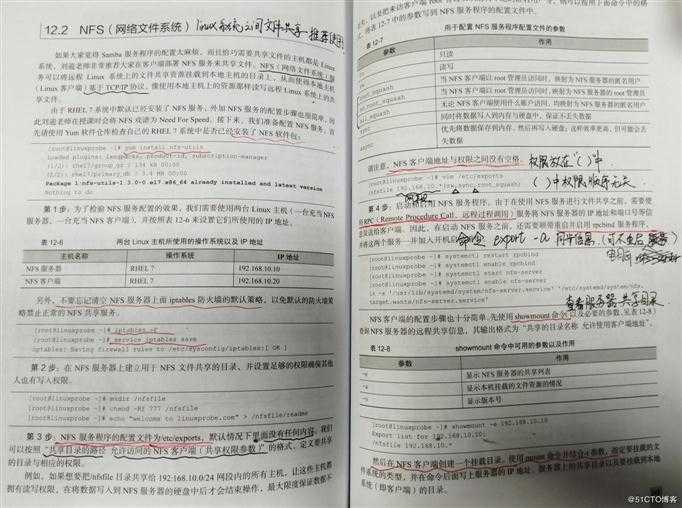 12.2 NFS（网络文件系统）
如果大家觉得 Samba 服务程序的配置太麻烦，而且恰巧需要共享文件的主机都是 Linux
系统，刘遄老师非常推荐大家在客户端部署 NFS 服务来共享文件。NFS（网络文件系统）服
务可以将远程 Linux 系统上的文件共享资源挂载到本地主机的目录上，从而使得本地主机
（Linux 客户端）基于 TCP/IP 协议，像使用本地主机上的资源那样读写远程 Linux 系统上的共
享文件。
由于 RHEL 7 系统中默认已经安装了 NFS 服务，外加 NFS 服务的配置步骤也很简单，因
此刘遄老师在授课时会将 NFS 戏谑为 Need For Speed。接下来，我们准备配置 NFS 服务。首
先请使用 Yum 软件仓库检查自己的 RHEL 7 系统中是否已经安装了 NFS 软件包：
[root@linuxprobe ~]# yum install nfs-utils
Loaded plugins: langpacks, product-id, subscription-manager
(1/2): rhel7/group_gz | 134 kB 00:00
(2/2): rhel7/primary_db | 3.4 MB 00:00
Package 1:nfs-utils-1.3.0-0.el7.x86_64 already installed and latest version
Nothing to do
第 1 步：为了检验 NFS 服务配置的效果，我们需要使用两台 Linux 主机（一台充当 NFS
服务器，一台充当 NFS 客户端），并按照表 12-6 来设置它们所使用的 IP 地址。
表 12-6 两台 Linux 主机所使用的操作系统以及 IP 地址
主机名称 操作系统 IP 地址
NFS 服务器 RHEL 7 192.168.10.10
NFS 客户端 RHEL 7 192.168.10.20
另外，不要忘记清空 NFS 服务器上面 iptables 防火墙的默认策略，以免默认的防火墙策
略禁止正常的 NFS 共享服务。
[root@linuxprobe ~]# iptables -F
[root@linuxprobe ~]# service iptables save
iptables: Saving firewall rules to /etc/sysconfig/iptables:[ OK ]
第 2 步：在 NFS 服务器上建立用于 NFS 文件共享的目录，并设置足够的权限确保其他
人也有写入权限。
[root@linuxprobe ~]# mkdir /nfsfile
[root@linuxprobe ~]# chmod -Rf 777 /nfsfile
[root@linuxprobe ~]# echo "welcome to linuxprobe.com" > /nfsfile/readme
第 3 步：NFS 服务程序的配置文件为/etc/exports，默认情况下里面没有任何内容。我们
可以按照“共享目录的路径 允许访问的 NFS 客户端（共享权限参数）”的格式，定义要共享
的目录与相应的权限。
例如，如果想要把/nfsfile 目录共享给 192.168.10.0/24 网段内的所有主机，让这些主机都
拥有读写权限，在将数据写入到 NFS 服务器的硬盘中后才会结束操作，最大限度保证数据不
表 12-7 用于配置 NFS 服务程序配置文件的参数
参数 作用
只读
读写
root_squash 当 NFS 客户端以 root 管理员访问时，映射为 NFS 服务器的匿名用户
当 NFS 客户端以 root 管理员访问时，映射为 NFS 服务器的 root 管理员
无论 NFS 客户端使用什么账户访问，均映射为 NFS 服务器的匿名用户
同时将数据写入到内存与硬盘中，保证不丢失数据
async 优先将数据保存到内存，然后再写入硬盘；这样效率更高，但可能会丢
失数据
请注意，NFS 客户端地址与权限之间没有空格。
权限放在“()”中
[root@linuxprobe ~]# vim /etc/exports
/nfsfile 192.168.10.*(rw,sync,root_squash)
()中权限顺序无关
第 4 步：启动和启用 NFS 服务程序。由于在使用 NFS 服务进行文件共享之前，需要使
用 RPC（Remote Procedure Call，远程过程调用）服务将 NFS 服务器的 IP 地址和端口号等信
息发送给客户端。因此，在启动 NFS 服务之前，还需要顺带重启并启用 rpcbind 服务程序，
并将这两个服务一并加入开机启
[root@linuxprobe ~]# systemctl restart rpcbind
[root@linuxprobe ~]# systemctl enable rpcbind
[root@linuxprobe ~]# systemctl start nfs-server
[root@linuxprobe ~]# systemctl enable nfs-server
ln -s '/usr/lib/systemd/system/nfs-server.service' '/etc/systemd/system/nfs-
target.wants/nfs-server.service'
查看服务器共享目录
NFS 客户端的配置步骤也十分简单。先使用 showmount 命令（以及必要的参数，见表 12-8）
查询 NFS 服务器的远程共享信息，其输出格式为“共享的目录名称 允许使用客户端地址”。
表 12-8 showmount 命令中可用的参数以及作用
参数 作用
-e 显示 NFS 服务器的共享列表
-a 显示本机挂载的文件资源的情况
-v 显示版本号
[root@linuxprobe ~]# showmount -e 192.168.10.10
Export list for 192.168.10.10:
/nfsfile 192.168.10.*
然后在 NFS 客户端创建一个挂载目录。使用 mount 命令并结合-t 参数，指定要挂载的文
件系统的类型，并在命令后面写上服务器的 IP 地址、服务器上的共享目录以及要挂载到本地
系统（即客户端）的目录。
@51CTO博客